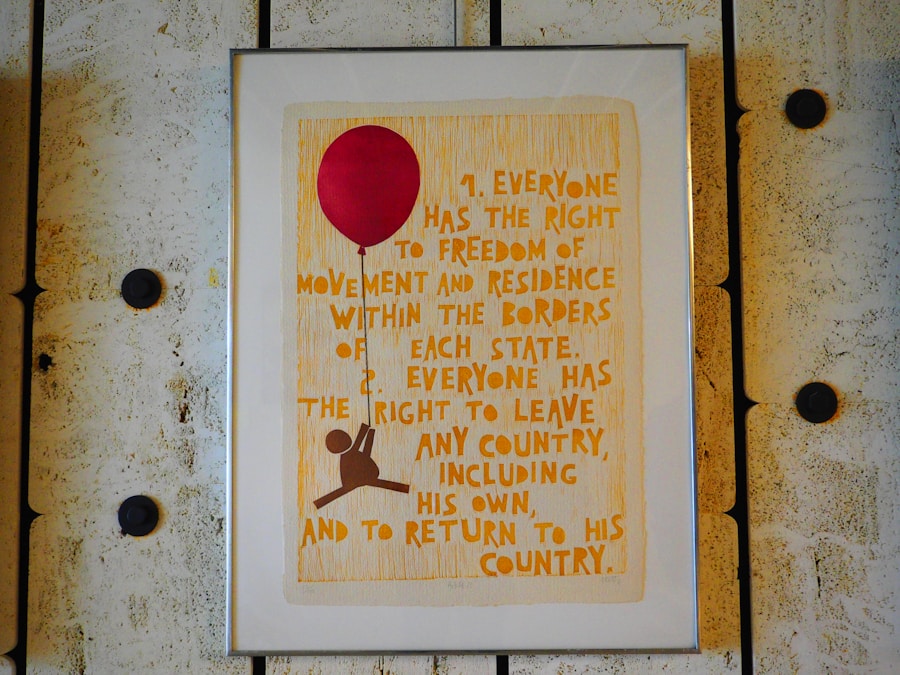 1. EVERYONE
HAS THE RIGHT
TO FREEDOM OF
MOVEMENT AND RESIDENCE
WITHIN THE BORDERS
OF EACH STATE.
2. EVERYONE HAS
THE RIGHT TO LEAVE
ANY COUNTRY,
INCLUDING
HIS OWN,
AND TO RETURN TO HIS
COUNTRY.